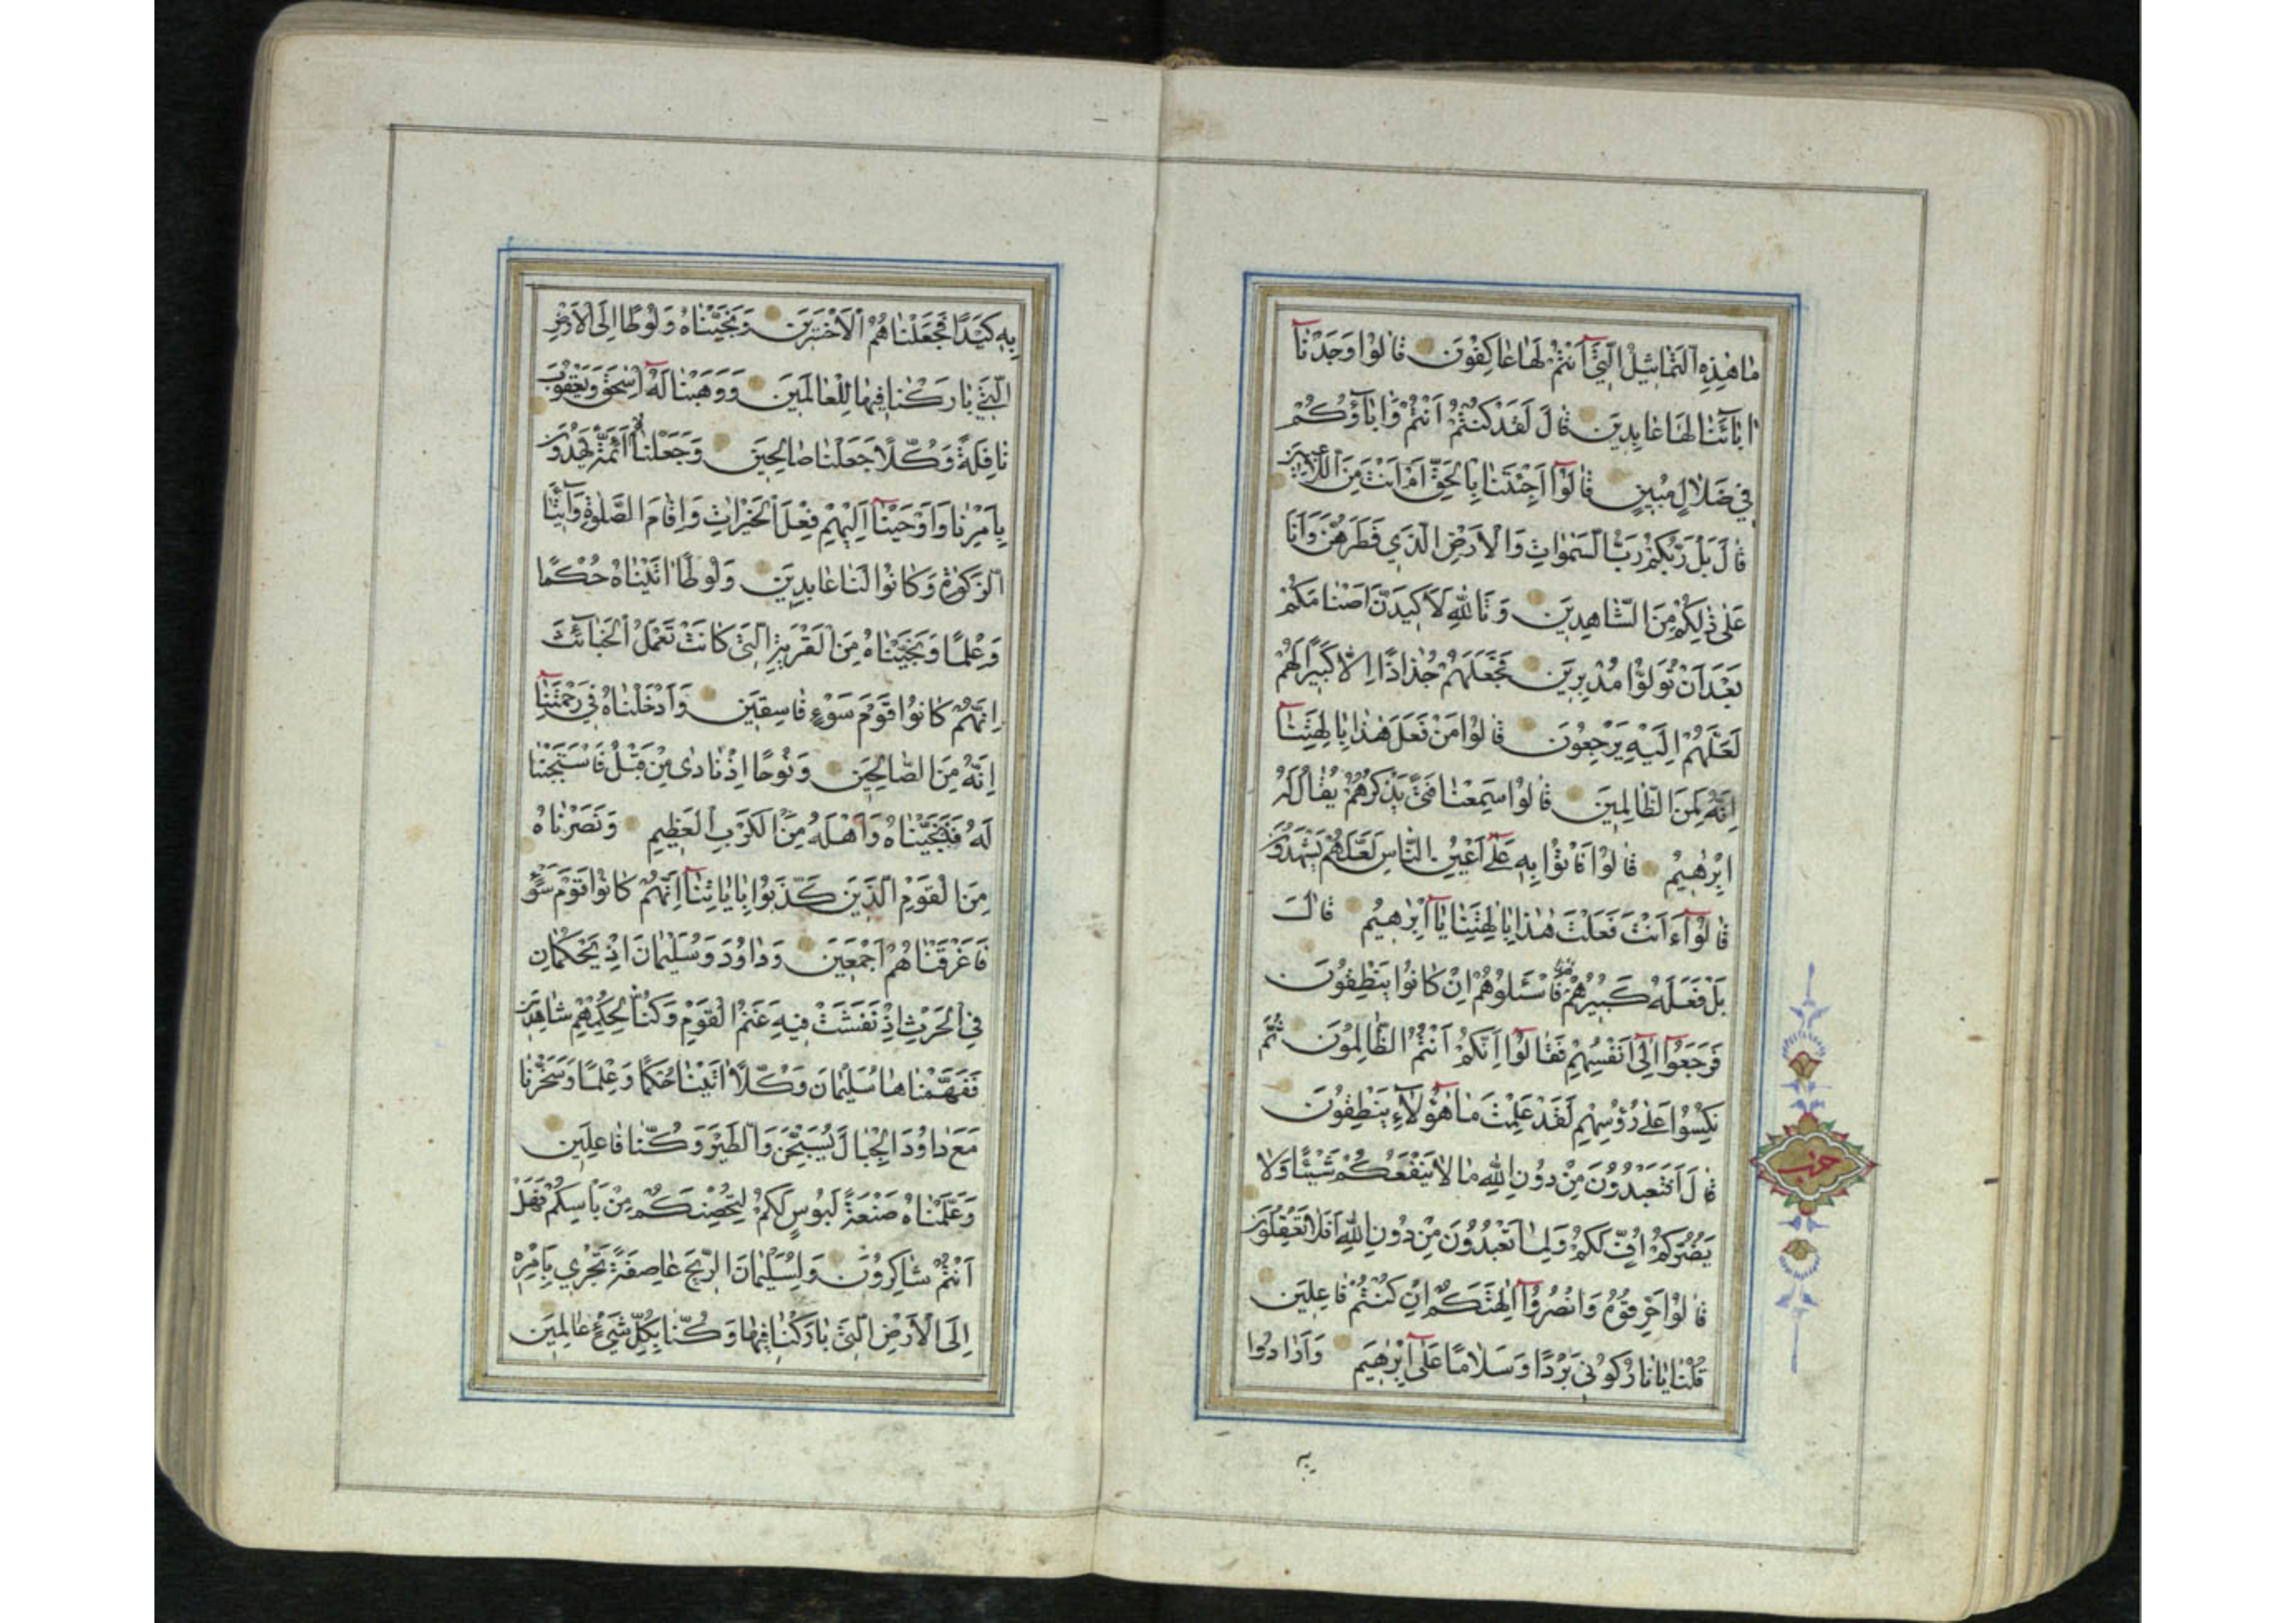 مَا هٰذِهِ التَّمَاثِيلُ الَّتِي أَنْتُمْ لَهَا عَاكِفُونَ قَالُوا وَجَدْنَا
اٰبَائَنَا لَهَا عَابِدِينَ قَالَ لَقَدْ كُنْتُمْ أَنْتُمْ وَاٰبَاؤُكُمْ
فِي ضَلَالٍ مُبِينٍ قَالُوا أَجِئْتَنَا بِالْحَقِّ أَمْ أَنْتَ مِنَ اللَّاعِبِينَ
قَالَ بَلْ رَبُّكُمْ رَبُّ السَّمٰوَاتِ وَالْأَرْضِ الَّذِي فَطَرَهُنَّ وَأَنَا
عَلٰى ذٰلِكُمْ مِنَ الشَّاهِدِينَ وَتَاللّٰهِ لَأَكِيدَنَّ أَصْنَامَكُمْ
بَعْدَ أَنْ تُوَلُّوا مُدْبِرِينَ فَجَعَلَهُمْ جُذَاذًا إِلَّا كَبِيرًا لَهُمْ
لَعَلَّهُمْ إِلَيْهِ يَرْجِعُونَ قَالُوا مَنْ فَعَلَ هٰذَا بِاٰلِهَتِنَا
إِنَّهُ لَمِنَ الظَّالِمِينَ قَالُوا سَمِعْنَا فَتًى يَذْكُرُهُمْ يُقَالُ لَهُ
إِبْرٰهِيمُ قَالُوا فَأْتُوا بِهِ عَلٰى أَعْيُنِ النَّاسِ لَعَلَّهُمْ يَشْهَدُونَ
قَالُوا ءَأَنْتَ فَعَلْتَ هٰذَا بِاٰلِهَتِنَا يَا إِبْرٰهِيمُ قَالَ
بَلْ فَعَلَهُ كَبِيرُهُمْ هٰذَا فَاسْئَلُوهُمْ إِنْ كَانُوا يَنْطِقُونَ
فَرَجَعُوا إِلٰى أَنْفُسِهِمْ فَقَالُوا إِنَّكُمْ أَنْتُمُ الظَّالِمُونَ ثُمَّ
نُكِسُوا عَلٰى رُؤُسِهِمْ لَقَدْ عَلِمْتَ مَا هٰؤُلَاءِ يَنْطِقُونَ
قَالَ أَفَتَعْبُدُونَ مِنْ دُونِ اللّٰهِ مَا لَا يَنْفَعُكُمْ شَيْئًا وَلَا
يَضُرُّكُمْ أُفٍّ لَكُمْ وَلِمَا تَعْبُدُونَ مِنْ دُونِ اللّٰهِ أَفَلَا تَعْقِلُونَ
قَالُوا حَرِّقُوهُ وَانْصُرُوا اٰلِهَتَكُمْ إِنْ كُنْتُمْ فَاعِلِينَ
قُلْنَا يَا نَارُ كُونِي بَرْدًا وَسَلَامًا عَلٰى إِبْرٰهِيمَ وَأَرَادُوا
حزب
به
بِهِ كَيْدًا فَجَعَلْنَاهُمُ الْأَخْسَرِينَ وَنَجَّيْنَاهُ وَلُوطًا إِلَى الْأَرْضِ
الَّتِي بَارَكْنَا فِيهَا لِلْعَالَمِينَ وَوَهَبْنَا لَهُ إِسْحٰقَ وَيَعْقُوبَ
نَافِلَةً وَكُلًّا جَعَلْنَا صَالِحِينَ وَجَعَلْنَاهُمْ أَئِمَّةً يَهْدُونَ
بِأَمْرِنَا وَأَوْحَيْنَا إِلَيْهِمْ فِعْلَ الْخَيْرَاتِ وَإِقَامَ الصَّلٰوةِ وَإِيتَاءَ
الزَّكٰوةِ وَكَانُوا لَنَا عَابِدِينَ وَلُوطًا اٰتَيْنَاهُ حُكْمًا
وَعِلْمًا وَنَجَّيْنَاهُ مِنَ الْقَرْيَةِ الَّتِي كَانَتْ تَعْمَلُ الْخَبَائِثَ
إِنَّهُمْ كَانُوا قَوْمَ سَوْءٍ فَاسِقِينَ وَأَدْخَلْنَاهُ فِي رَحْمَتِنَا
إِنَّهُ مِنَ الصَّالِحِينَ وَنُوحًا إِذْ نَادٰى مِنْ قَبْلُ فَاسْتَجَبْنَا
لَهُ فَنَجَّيْنَاهُ وَأَهْلَهُ مِنَ الْكَرْبِ الْعَظِيمِ وَنَصَرْنَاهُ
مِنَ الْقَوْمِ الَّذِينَ كَذَّبُوا بِاٰيَاتِنَا إِنَّهُمْ كَانُوا قَوْمَ سَوْءٍ
فَأَغْرَقْنَاهُمْ أَجْمَعِينَ وَدَاوُدَ وَسُلَيْمَانَ إِذْ يَحْكُمَانِ
فِي الْحَرْثِ إِذْ نَفَشَتْ فِيهِ غَنَمُ الْقَوْمِ وَكُنَّا لِحُكْمِهِمْ شَاهِدِينَ
فَفَهَّمْنَاهَا سُلَيْمَانَ وَكُلًّا اٰتَيْنَا حُكْمًا وَعِلْمًا وَسَخَّرْنَا
مَعَ دَاوُدَ الْجِبَالَ يُسَبِّحْنَ وَالطَّيْرَ وَكُنَّا فَاعِلِينَ
وَعَلَّمْنَاهُ صَنْعَةَ لَبُوسٍ لَكُمْ لِتُحْصِنَكُمْ مِنْ بَأْسِكُمْ فَهَلْ
أَنْتُمْ شَاكِرُونَ وَلِسُلَيْمَانَ الرِّيحَ عَاصِفَةً تَجْرِي بِأَمْرِهِ
إِلَى الْأَرْضِ الَّتِي بَارَكْنَا فِيهَا وَكُنَّا بِكُلِّ شَيْءٍ عَالِمِينَ